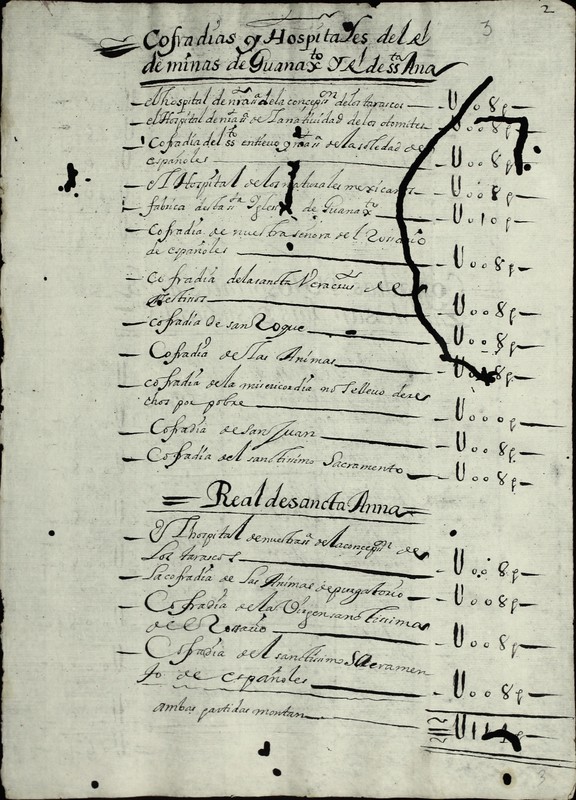 3 2
Cofradias y Hospitales del rl
de minas de Guanaxto y rl de ssta Ana
el hospital de nra sra de la concepon de los tarascos U008p
el Hospital de nra sra de la natividad de los otomites U008p
Cofradia del sto entierro y nra sra de la soledad de
españoles U008p
el Hospital de los naturales mexicanos U008p
fabrica desta sta Iglesia de Guanaxto U010p
Cofradia de nuestra señora del Rosario
de españoles U008p
cofradia de la sancta Veracrus de
mestizos U008p
cofradia de san Roque U008p
Cofradia de las Animas U008p
cofradia de la misericordia no se llevo dere
chos por pobre U000p
Cofradia de san Juan U008p
Cofradia del sanctissimo Sacramento U008p
Real de sancta Anna
el hospital de nuestra sra de la concepon de
los tarascos U008p
la cofradia de las Animas de purgatorio U008p
Cofradia de la Virgen sanctissima
del Rosario U008p
Cofradia del sanctissimo Sacramen
to de españoles U008p
ambas partidas montan